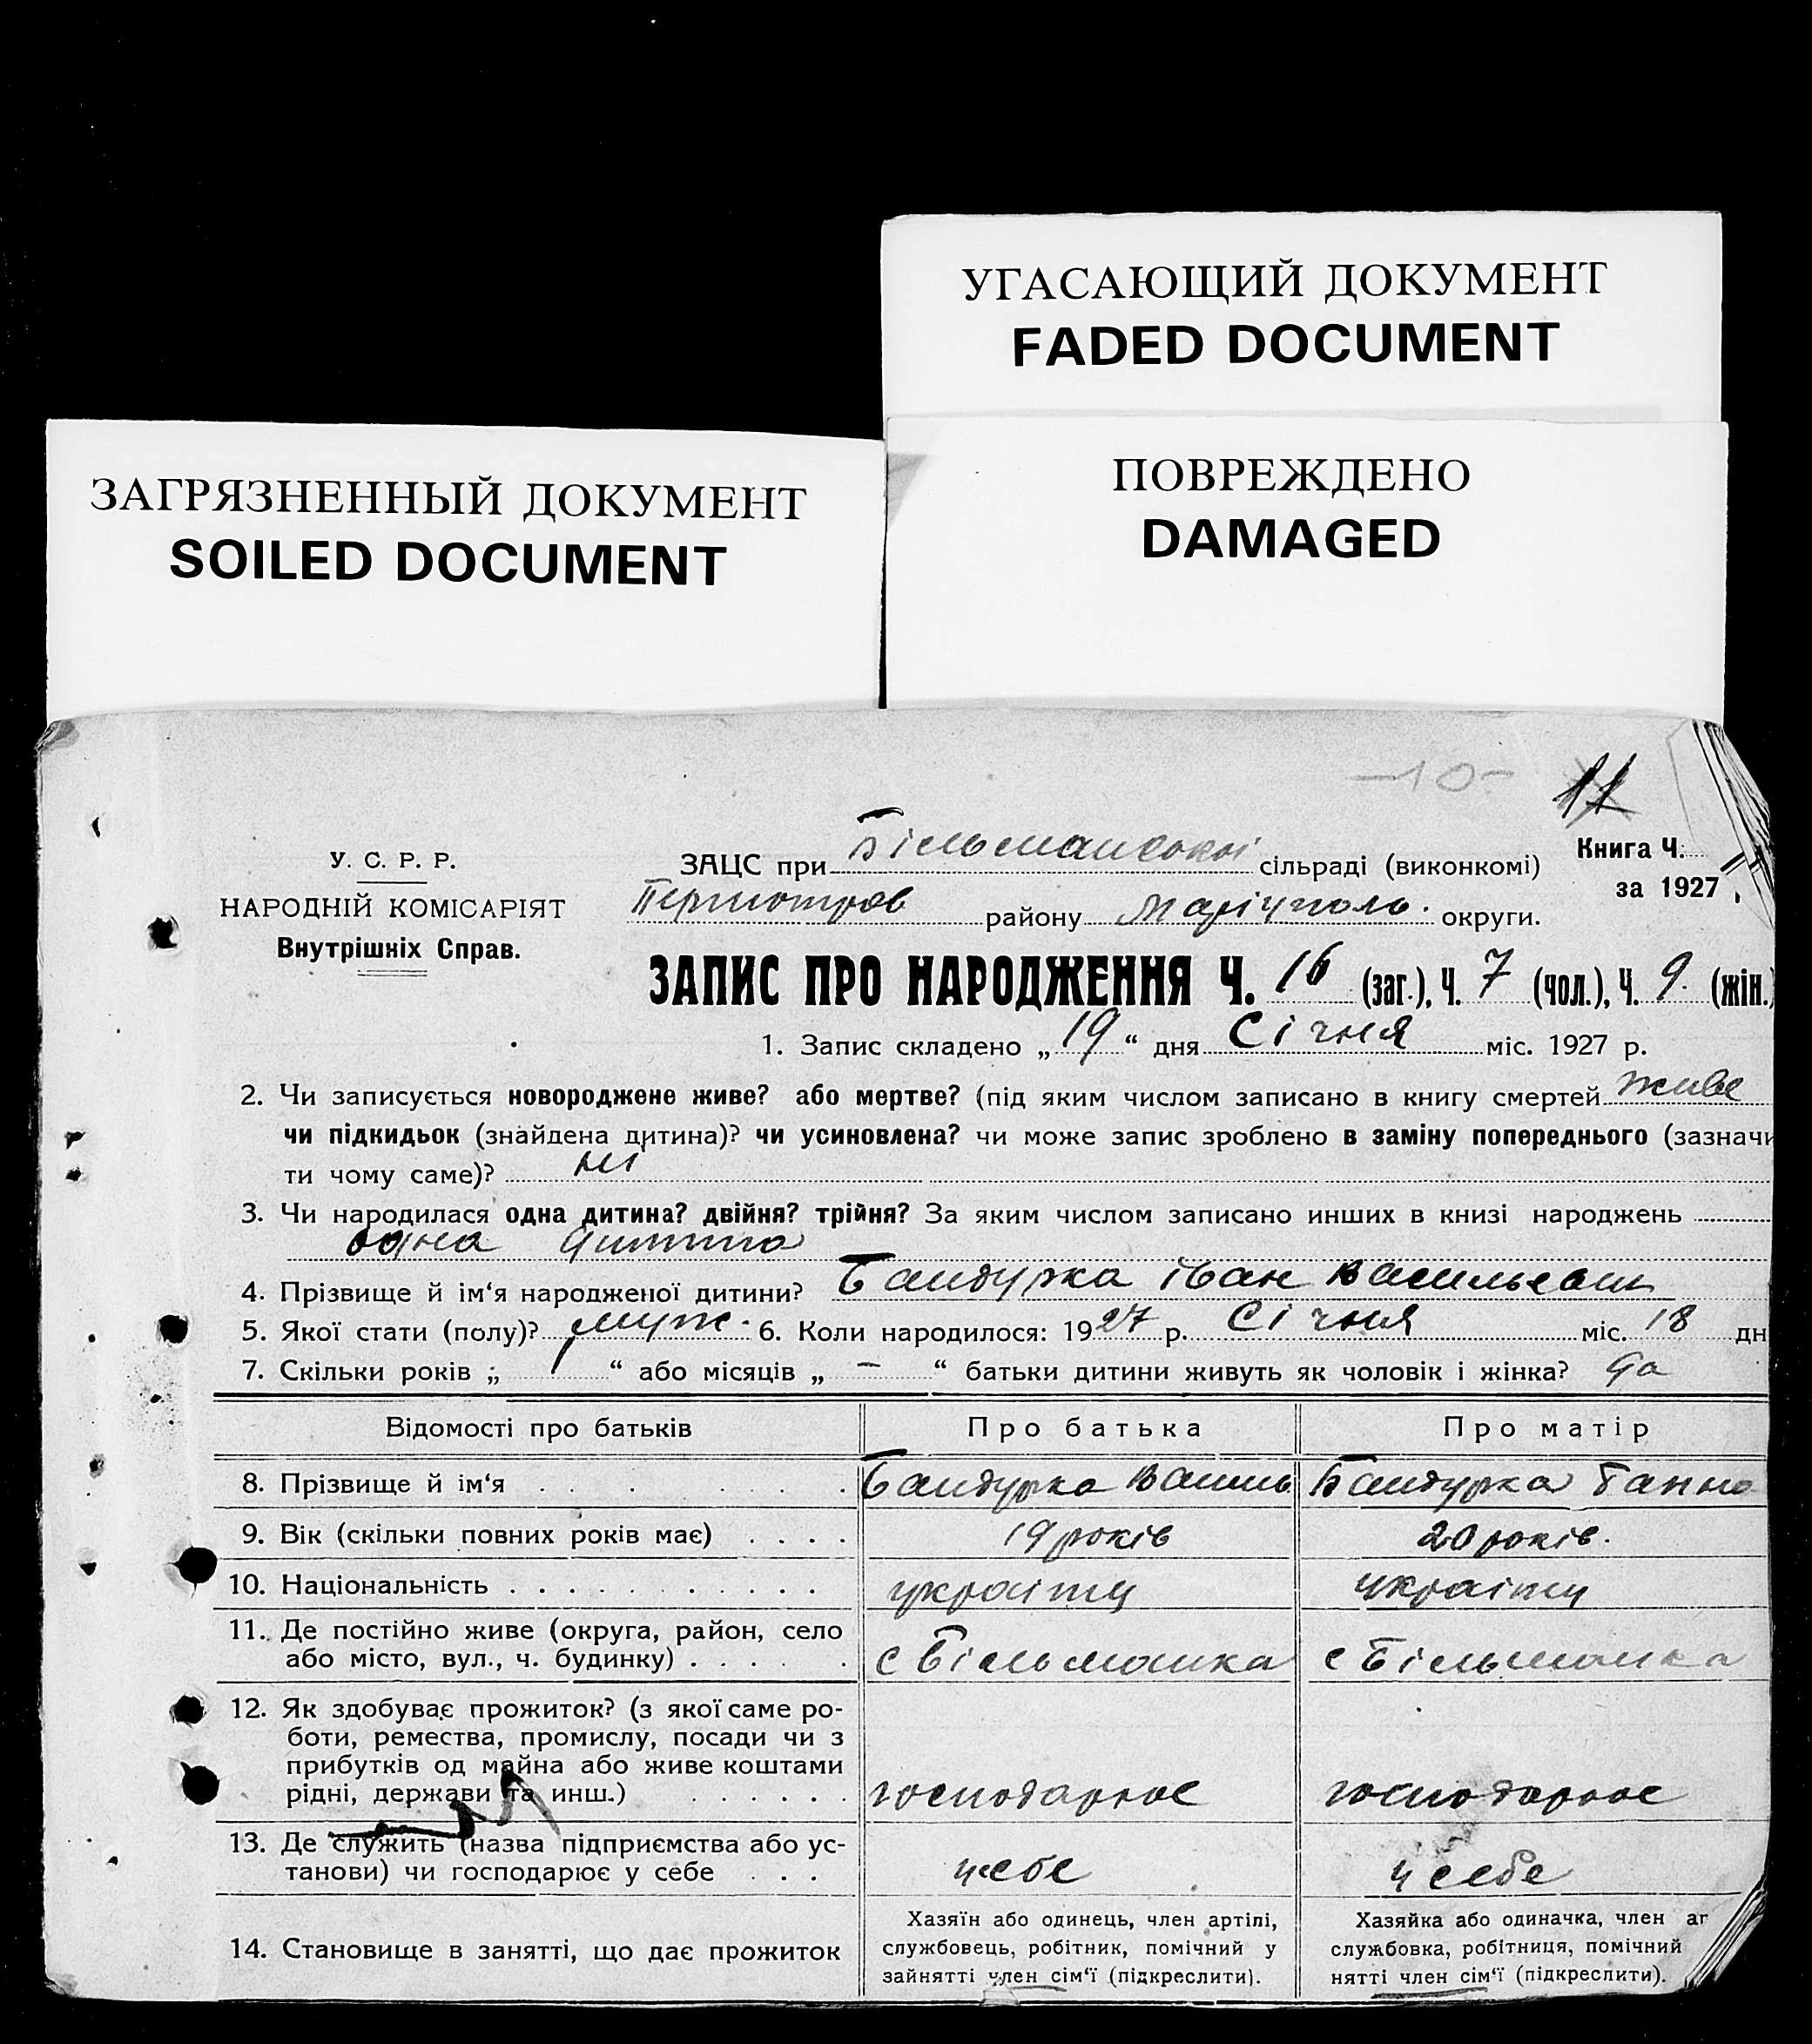 УГАСАЮЩИЙ ДОКУМЕНТ
FADED DOCUMENT
ЗАГРЯЗНЕННЫЙ ДОКУМЕНТ
SOILED DOCUMENT
ПОВРЕЖДЕНО
DAMAGED
-10-
11
У. С. Р. Р.
НАРОДНІЙ КОМІСАРІЯТ
Внутрішніх Справ.
ЗАЦС при Більманській сільраді (виконкомі)
Книга Ч.
за 1927
району Маріуполь. округи.
ЗАПИС ПРО НАРОДЖЕННЯ Ч. 16 (заг.), Ч. 7 (чол.), Ч. 9. (жін.)
1. Запис складено „ 19 “ дня Січня міс. 1927 р.
2. Чи записується новороджене живе? або мертве? (під яким числом записано в книгу смертей живе
чи підкидьок (знайдена дитина)? чи усиновлена? чи може запис зроблено в заміну попереднього (зазначи
ти чому саме)? ні
3. Чи народилася одна дитина? двійня? трійня? За яким числом записано инших в книзі народжень
одна дитина
4. Прізвище й ім‘я народженої дитини? Бандурка Іван Васильевич
5. Якої стати (полу)? муж. 6. Коли народилося: 1927 р. Січня міс. 18 дн
7. Скільки років „ 1 “ або місяців „ — “ батьки дитини живуть як чоловік і жінка? да
Відомості про батьків Про батька Про матір
8. Прізвище й ім‘я Бандурка Василь Бандурка Ганна
9. Вік (скільки повних років має) 19 років 20 років.
10. Національність українц українц
11. Де постійно живе (округа, район, село
або місто, вул., ч. будинку) с Більманка с Більманка
12. Як здобуває прожиток? (з якої саме ро-
боти, ремества, промислу, посади чи з
прибутків од майна або живе коштами
рідні, держави та инш.) господарює господарює
13. Де служить (назва підприємства або ус-
танови) чи господарює у себе у себе у себе
14. Становище в занятті, що дає прожиток
Хазяїн або одинець, член артілі,
службовець, робітник, помічний у
зайнятті член сім‘ї (підкреслити).
Хазяйка або одиначка, член ар
службовка, робітниця, помічний
нятті член сім‘ї (підкреслити).